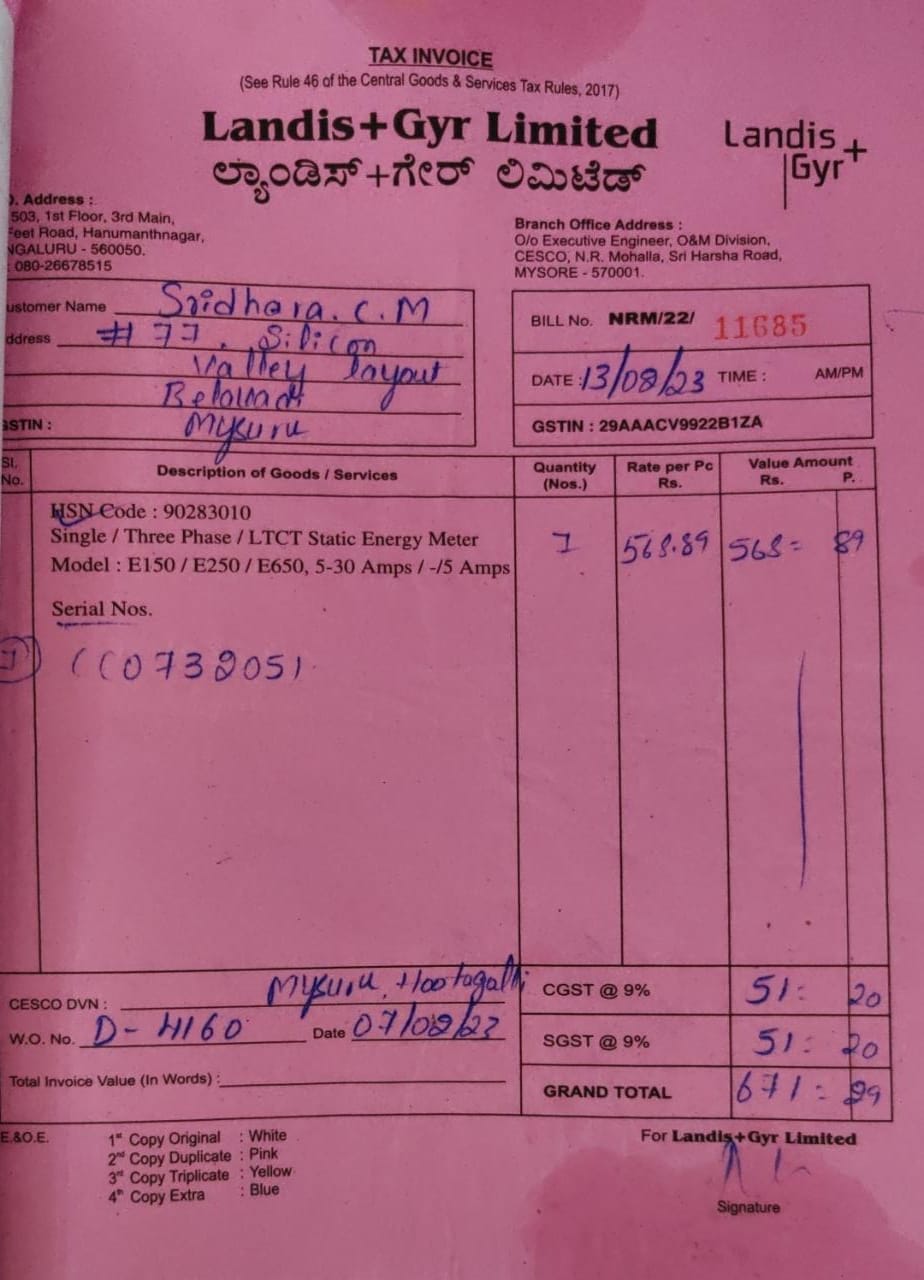 TAX INVOICE
(See Rule 46 of the Central Goods & Services Tax Rules, 2017)
Landis+Gyr Limited
ಲ್ಯಾಂಡಿಸ್+ಗೇರ್ ಲಿಮಿಟೆಡ್
Landis
Gyr+
. Address :
503, 1st Floor, 3rd Main,
Feet Road, Hanumanthnagar,
NGALURU - 560050.
: 080-26678515
Branch Office Address :
O/o Executive Engineer, O&M Division,
CESCO, N.R. Mohalla, Sri Harsha Road,
MYSORE - 570001.
ustomer Name Sridhara. C. M
ddress # 77, Silicon
Valley layout
Mysuru
GSTIN :
BILL No. NRM/22/ 11685
DATE : 13/08/23 TIME : AM/PM
GSTIN : 29AAACV9922B1ZA
Sl. No. Description of Goods / Services Quantity (Nos.) Rate per Pc Rs. Value Amount Rs. P.
HSN Code : 90283010
Single / Three Phase / LTCT Static Energy Meter 1 568.89 568= 89
Model : E150 / E250 / E650, 5-30 Amps / -/5 Amps
Serial Nos.
1
CESCO DVN : Mysuru, Hootagalli
W.O. No. D-4160 Date 07/08/23
Total Invoice Value (In Words) :
CGST @ 9% 51: 20
SGST @ 9% 51: 20
GRAND TOTAL 671:
E.&O.E.
1st Copy Original : White
2nd Copy Duplicate : Pink
3rd Copy Triplicate : Yellow
4th Copy Extra : Blue
For Landis+Gyr Limited
Signature